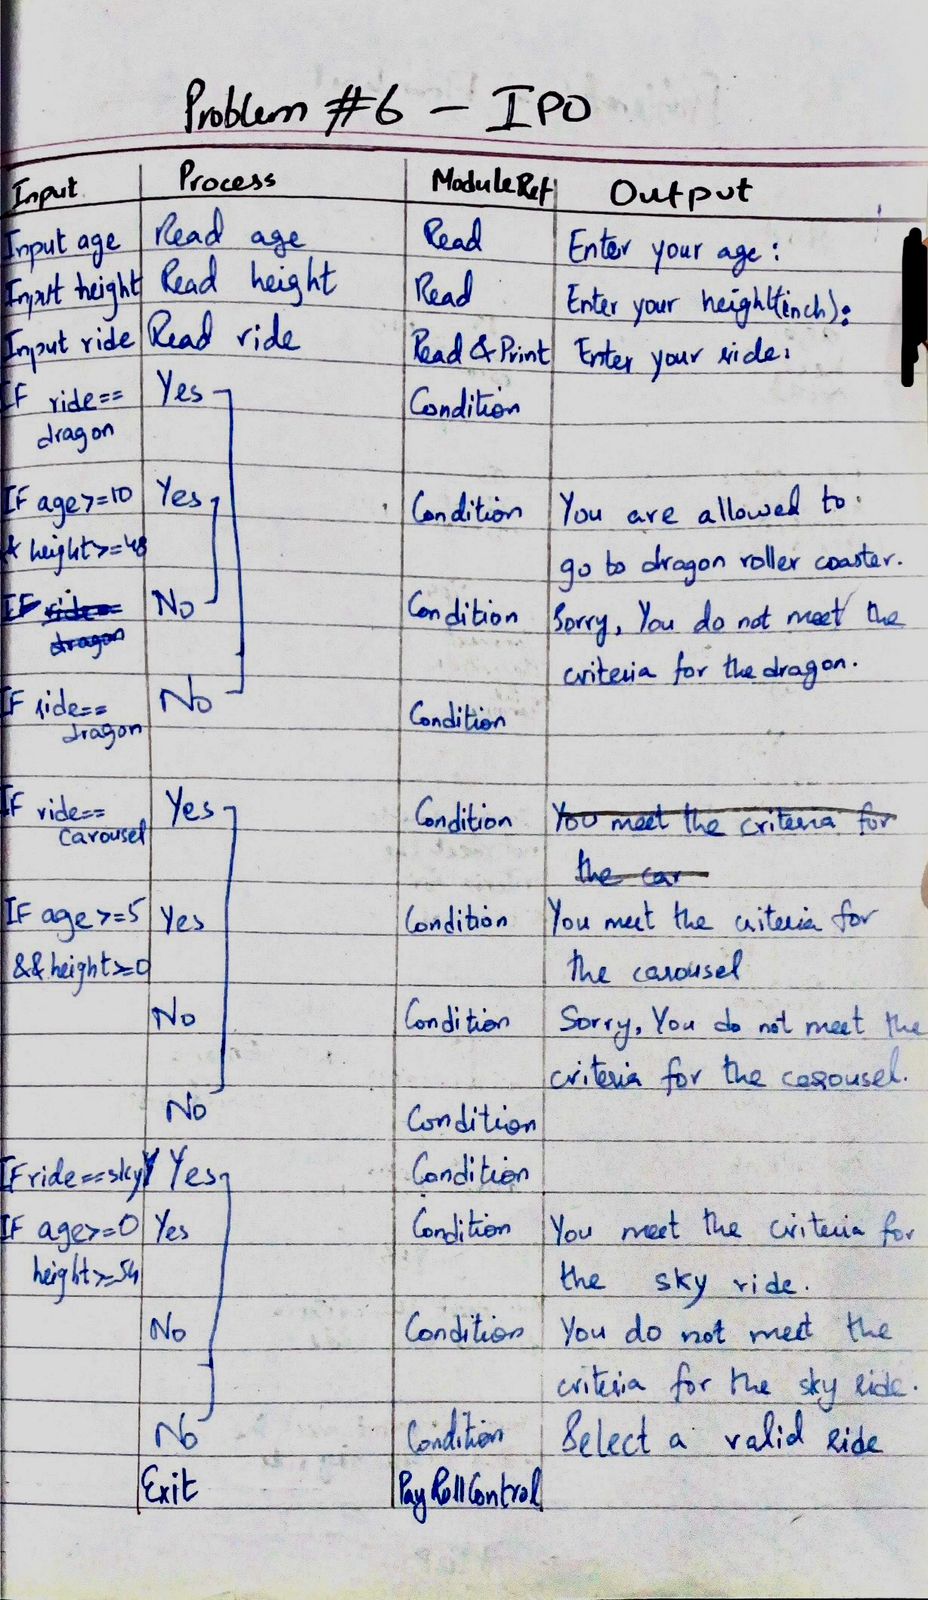 Problem #6 - IPO
Input Process Module Ref Output
Input age Read age Read Enter your age :
Input height Read height Read Enter your height(inch):
Input ride Read ride Read & Print Enter your ride:
IF ride== Yes Condition
dragon
IF age>=10 Yes Condition You are allowed to
& height>=48 go to dragon roller coaster.
IF ride== No Condition Sorry, You do not meet the
dragon criteria for the dragon.
IF ride== No Condition
dragon
IF ride== Yes Condition You meet the criteria for
carousel the car
IF age>=5 Yes Condition You meet the criteria for
&& height>=0 the carousel
No Condition Sorry, You do not meet the
criteria for the carousel.
No Condition
IF ride==sky Yes Condition
IF age>=0 Yes Condition You meet the criteria for
height>=54 the sky ride.
No Condition You do not meet the
criteria for the sky ride.
No Condition Select a valid ride
Exit PayRollControl